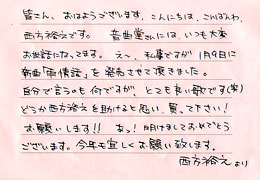 皆さん、おはようございます。こんにちは、こんばんわ、
西方裕之です。 音曲堂さんには、いつも大変
お世話になってます。え〜、私事ですが1月9日に
新曲「　情話」を発売させて頂きました。
自分で言うのも何でですが、とても良い歌です(笑)
どうか西方裕之を助けると思い、買って下さい!
お願いします!! あっ! 明けましておめでとう
ございます。今年も宜しくお願い致します。
西方裕之より